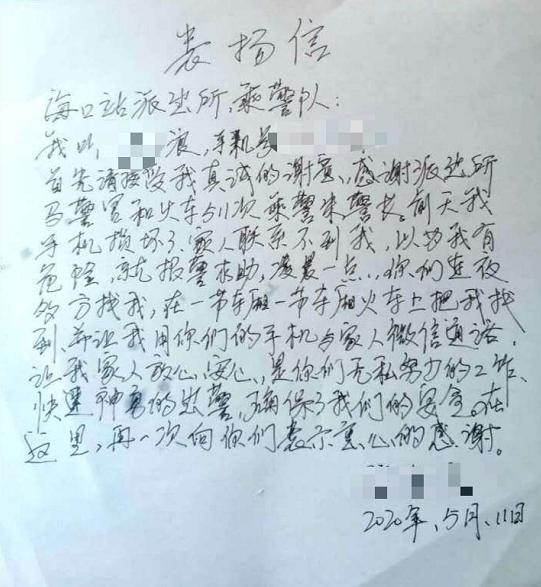 表扬信
海口站派出所,乘警队:
我叫, 浪,手机号
首先请接受我真诚的谢意、感谢派出所
马警官和火车 次乘警朱警长。前天我
手机损坏了,家人联系不到我,以为我有
危险,就报警求助,凌晨一点、你们连夜
多方找我,在一节车厢一节车厢火车上把我找
到、并让我用你们的手机与家人微信通话,
让我家人放心,安心,是你们无私努力的工作、
快速神勇的出警,确保了我们的安全。在
这里,再一次向你们表示衷心的感谢。
2020年,5月、11日